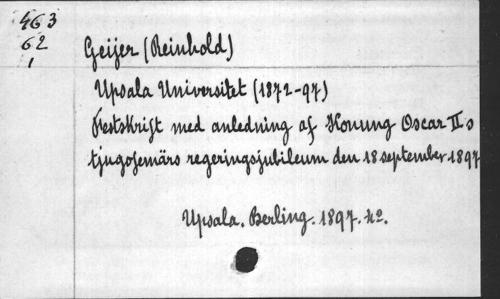 463
62
1
Geijer (Reinhold)
Upsala Universitet (1872-97)
Festskrift med anledning af Konung Oscar II:s
tjugofemårs regeringsjubileum den 18 september 1897
Upsala. Berling. 1897. 4º.